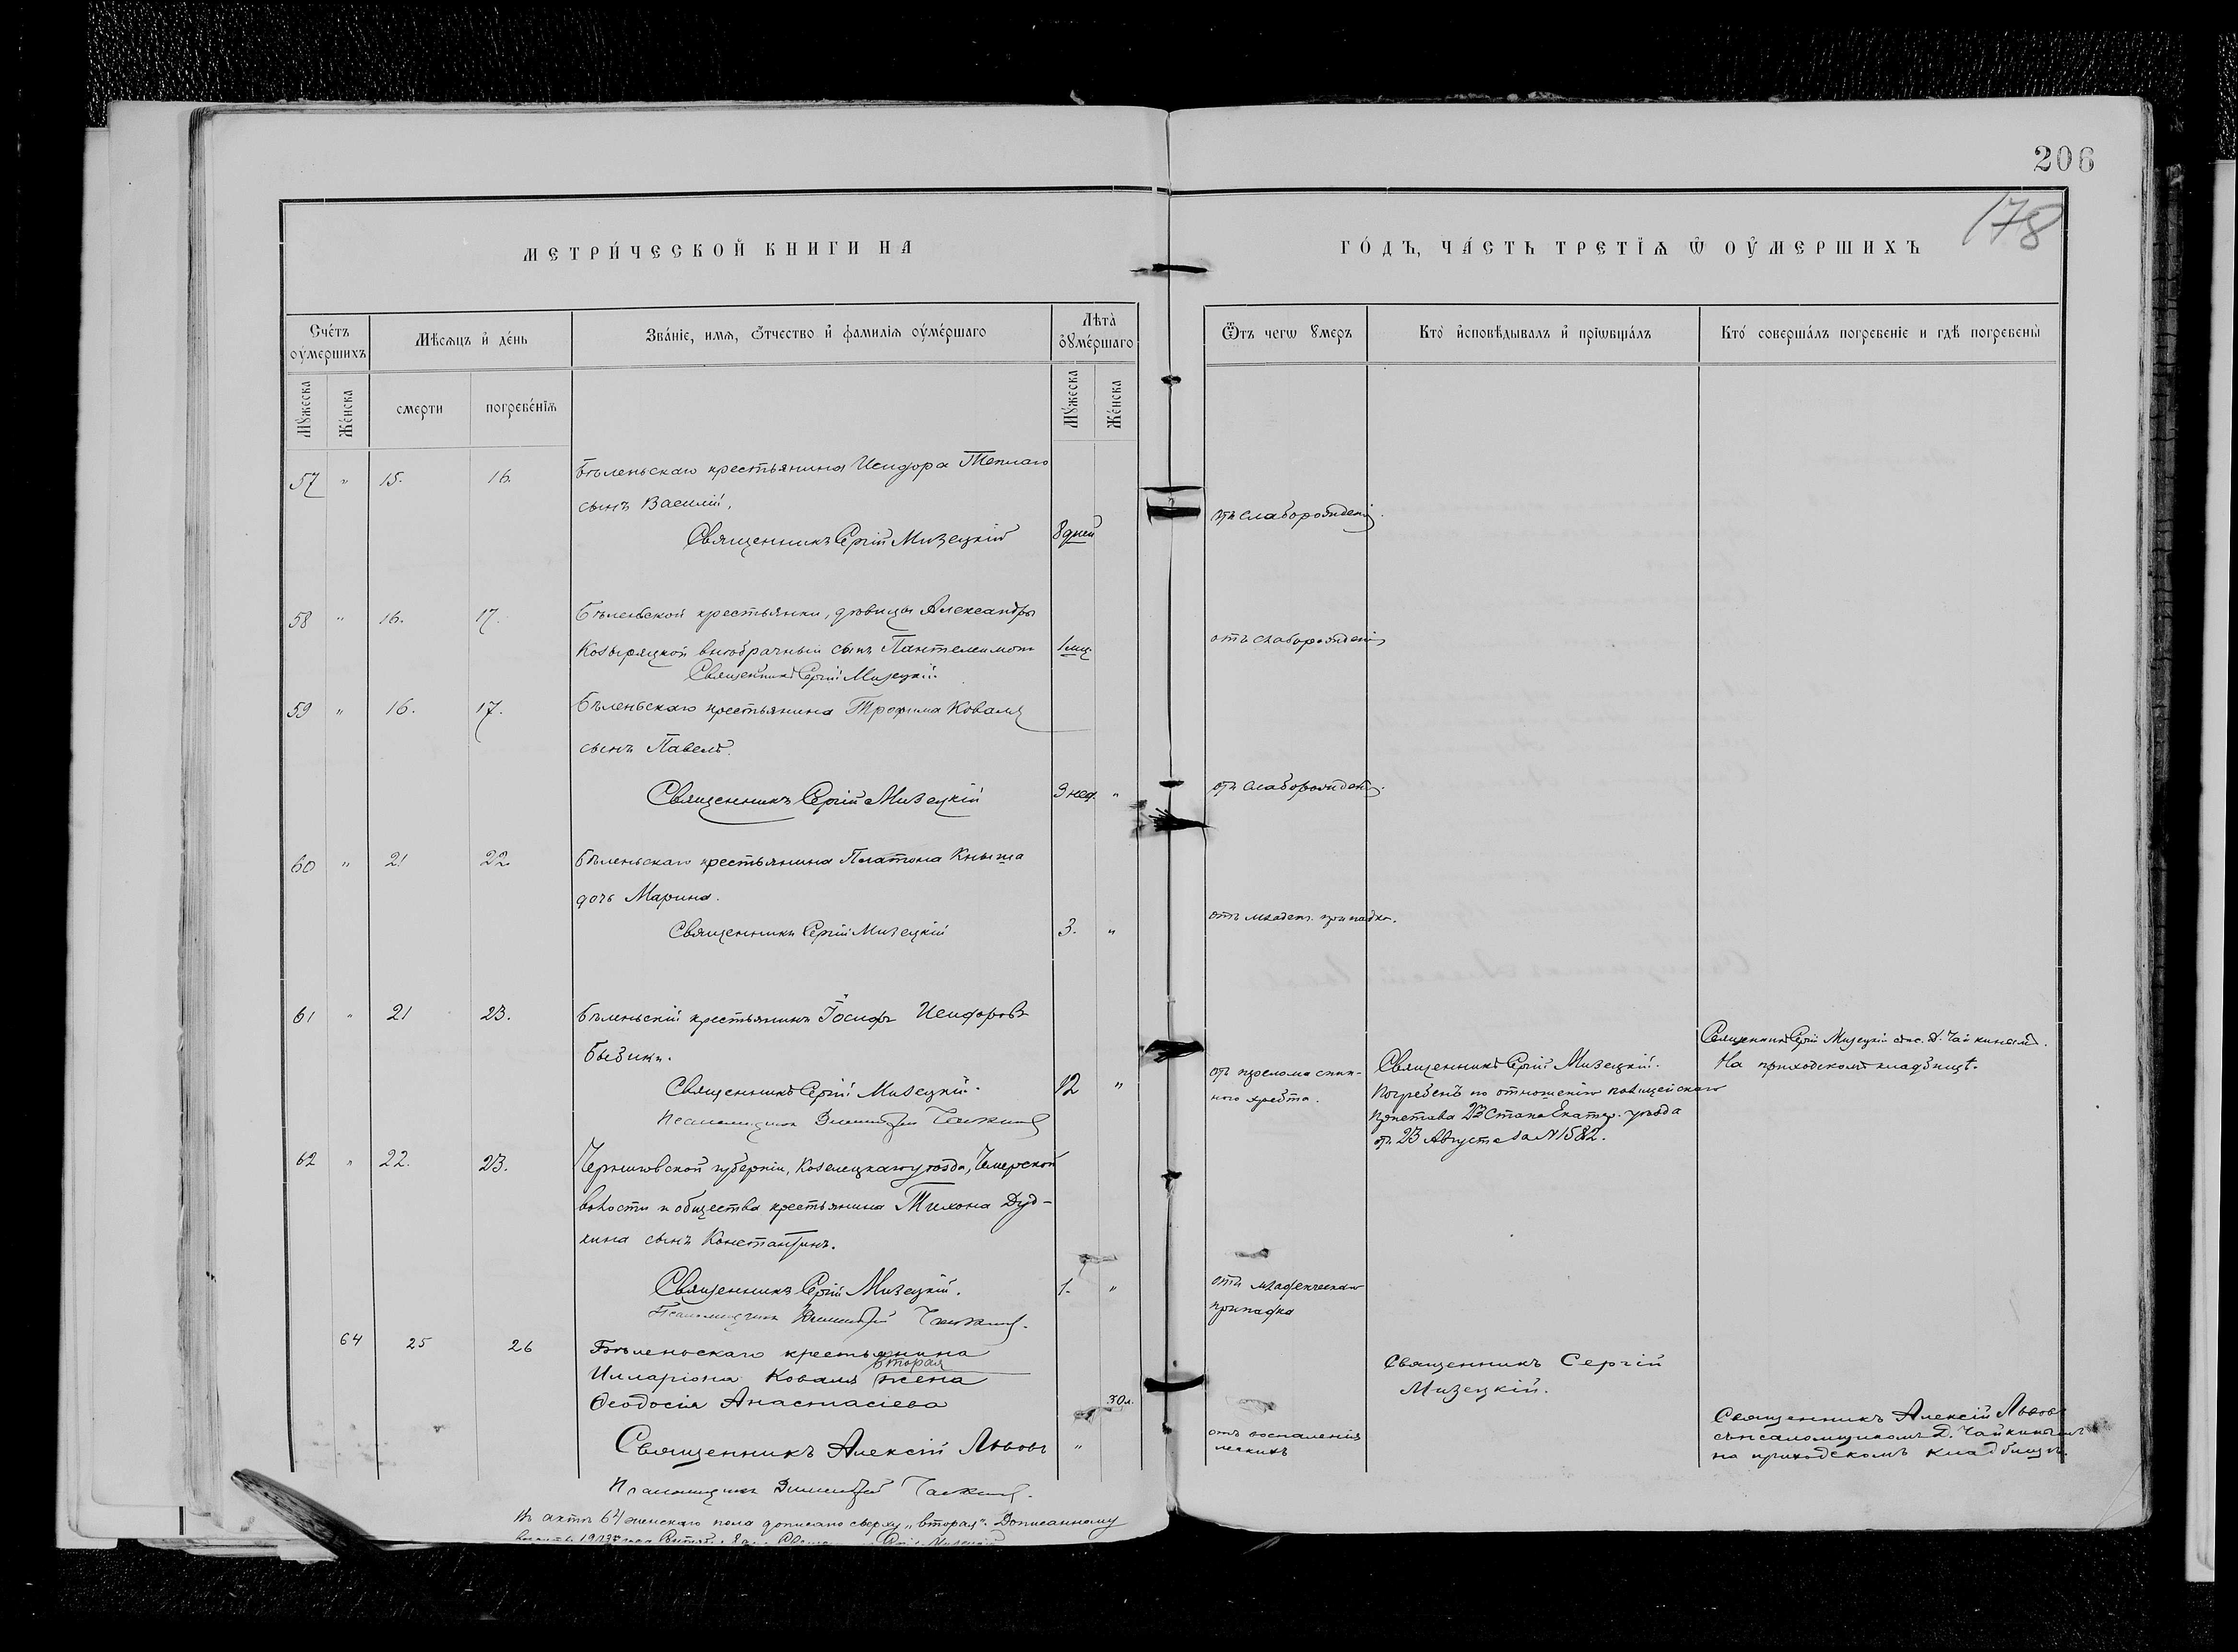 206
178
МЕТРИ́ЧЕСКОЙ КНИГИ НА
ГО́ДЪ, ЧА́СТЬ ТРЕТІѦ Ѡ ОУ҆МЕРШИХЪ
Сче́тъ оу҆ме́ршихъ
Мѣ́сѧцъ и҆ де́нь
Зва́ніе, имѧ, ѻ҆́тчество и҆ фамиліѧ оу҆ме́ршаго
Лѣта̀ оу҆ме́ршаго
Ѿ́тъ чегѡ ѹмеръ
Кто̀ и҆сповѣ́дывалъ и҆ прїѡбща́лъ
Кто́ соверша́лъ погребе́ніе и гдѣ̀ погребены̀
Мꙋ́жеска
Же́нска
смерти
погребе́нїѧ
Мꙋ́жеска
Же́нска
57 " 15. 16. Бѣленьскаго крестьянина Исидора Теплаго
сынъ Василій,
Священникъ Сергій Мизецкій 8 дней отъ слаборожденія.
58 " 16. 17. Бѣленьской крестьянки, дѣвицы Александры
Козыряцкой внѣбрачный сынъ Пантелеимонъ 1 мц. отъ слаборожденія
Священникъ Сергій Мизецкій.
59 " 16. 17. Бѣленьскаго крестьянина Трофима Коваля
сынъ Павелъ.
Священникъ Сергій Мизецкій 3 нед. " отъ слаборожденія.
60 " 21 22 Бѣленьскаго крестьянина Платона Кныша
дочь Марина.
Священникъ Сергій Мизецкій 3. " отъ младен. припадка.
61 " 21 23. Бѣленьскій крестьянинъ Іосифъ Исидоровъ
Бызикъ.
Священникъ Сергій Мизецкій. 12 "
Псаломщикъ Димитрій Чайкинъ
отъ перелома спин-
ного хребта.
Священникъ Сергій Мизецкій.
Погребенъ по отношенію полицейскаго
Пристава 2 Стана Екатер. уѣзда
отъ 23 Августа за № 1582.
Священникъ Сергій Мизецкій съ пс. Д. Чайкинымъ.
На приходскомъ кладбищѣ.
62 " 22. 23. Черниговской губерніи, Козелецкаго уѣзда, Чемерской
волости и общества крестьянина Тихона Дуд-
кина сынъ Константинъ.
Священникъ Сергій Мизецкій. 1. "
Псаломщикъ Димитрій Чайкинъ.
отъ младенческаго
припадка
64 25 26 Бѣленьскаго крестьянина
вторая
Илларіона Коваля жена
Ѳеодосія Анастасіева 30 л.
Священникъ Алексій Львовъ "
Псаломщикъ Димитрій Чайкинъ.
отъ воспаленія
легкихъ
Священникъ Сергій
Мизецкій.
Священникъ Алексій Львовъ
съ псаломщикомъ Д. Чайкинымъ
на приходскомъ кладбищѣ.
Въ актѣ 64 женскаго пола дописано сверху „вторая". Дописанному